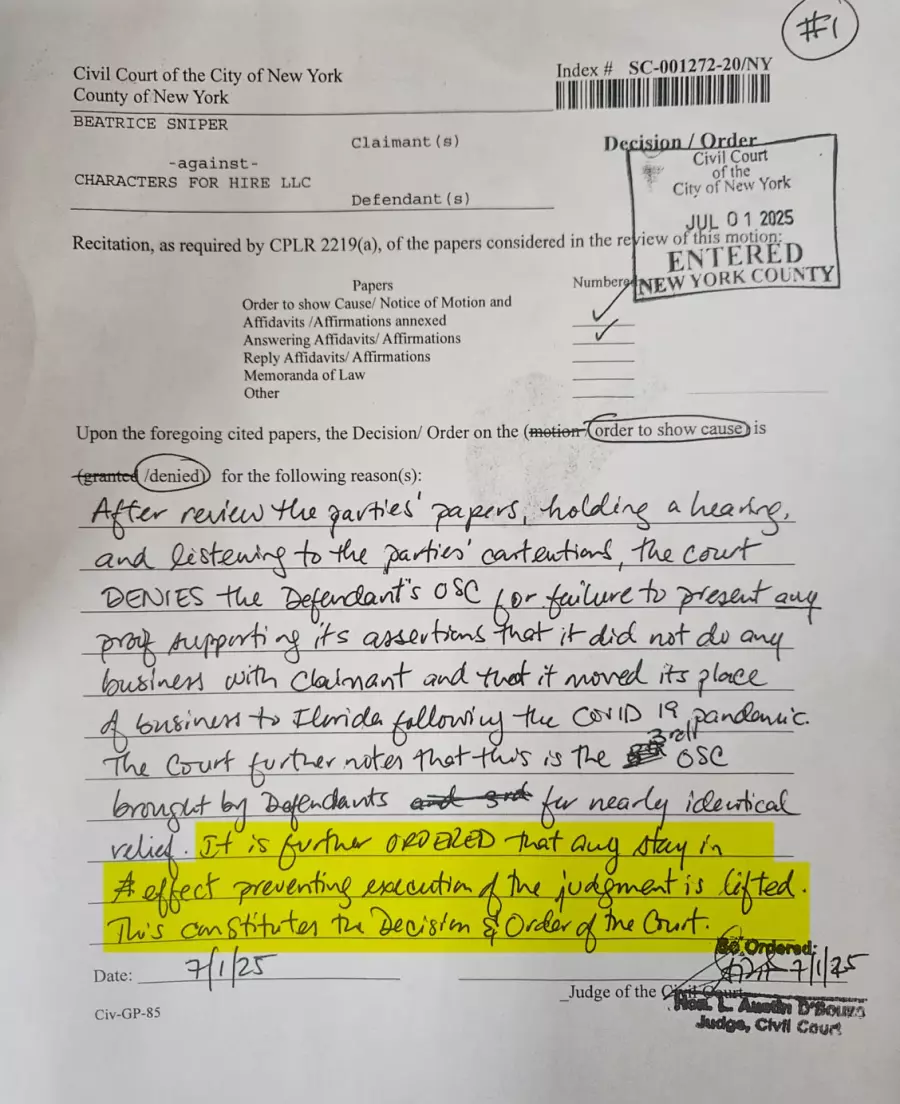 #1
Civil Court of the City of New York
County of New York
Index # SC-001272-20/NY
BEATRICE SNIPER
Claimant(s)
-against-
CHARACTERS FOR HIRE LLC
Defendant(s)
Decision / Order
Civil Court
of the
City of New York
JUL 01 2025
ENTERED
NEW YORK COUNTY
Recitation, as required by CPLR 2219(a), of the papers considered in the review of this motion:
Papers
Numbered
Order to show Cause/ Notice of Motion and
Affidavits /Affirmations annexed
Answering Affidavits/ Affirmations
Reply Affidavits/ Affirmations
Memoranda of Law
Other
Upon the foregoing cited papers, the Decision/ Order on the (motion / order to show cause) is
(granted /denied) for the following reason(s):
After review the parties' papers, holding a hearing,
and listening to the parties' contentions, the court
DENIES the Defendant's OSC for failure to present any
proof supporting its assertions that it did not do any
business with Claimant and that it moved its place
of business to Florida following the COVID 19 pandemic.
The Court further notes that this is the 3rd OSC
brought by Defendants and 3rd for nearly identical
relief. It is further ORDERED that any stay in
effect preventing execution of the judgment is lifted.
This constitutes the Decision & Order of the Court.
Date: 7/1/25
So Ordered:
7/1/25
Judge of the Civil Court
Hon. L. Austin D'Souza
Judge, Civil Court
Civ-GP-85